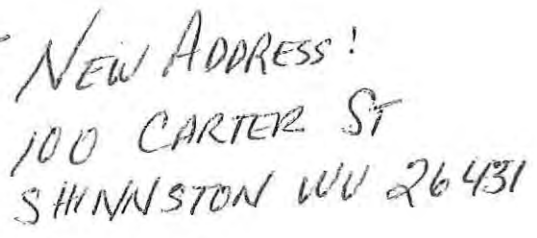 NEW ADDRESS!
100 CARTER ST
SHINNSTON WV 26431